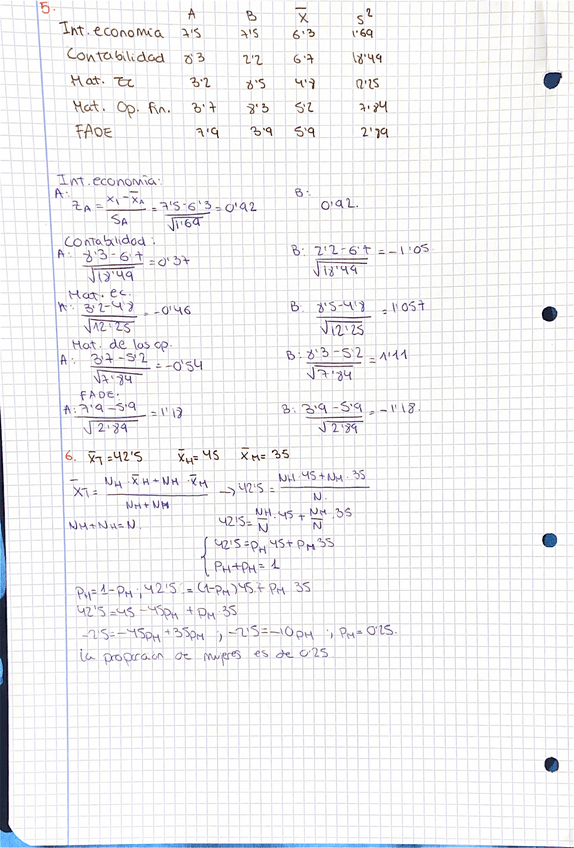 5.
A B X̄ S²
Int. economia 7'5 7'5 6'3 1'69
Contabilidad 8'3 2'2 6'7 18'49
Mat. Ec 3'2 8'5 4'8 12'25
Mat. Op. fin. 3'7 8'3 5'2 7'84
FADE 7'9 3'9 5'9 2'89
Int. economia:
A: Z_A = (x_1 - X̄_A)/S_A = (7'5-6'3)/√1'69 = 0'92 B: 0'92.
Contabilidad:
A: (8'3-6'7)/√18'49 = 0'37 B: (2'2-6'7)/√18'49 = -1'05
Mat. ec.
A: (3'2-4'8)/√12'25 = -0'46 B. (8'5-4'8)/√12'25 = 1'057
Mat. de las op.
A: (3'7-5'2)/√7'84 = -0'54 B: (8'3-5'2)/√7'84 = 1'11
FADE.
A: (7'9-5'9)/√2'89 = 1'18 B: (3'9-5'9)/√2'89 = -1'18.
6. X̄_T = 42'5 X̄_H = 45 X̄_M = 35
X̄_T = (N_H · X̄_H + N_M · X̄_M)/(N_H + N_M) → 42'5 = (N_H · 45 + N_M · 35)/N.
N_H + N_M = N. 42'5 = N_H/N · 45 + N_M/N · 35
{ 42'5 = P_H 45 + P_M 35
P_H + P_M = 1
P_H = 1 - P_M ; 42'5 = (1-P_M) 45 + P_M 35
42'5 = 45 - 45P_M + P_M 35
-2'5 = -45P_M + 35P_M ; -2'5 = -10P_M ; P_M = 0'25.
La proporción de mujeres es de 0'25